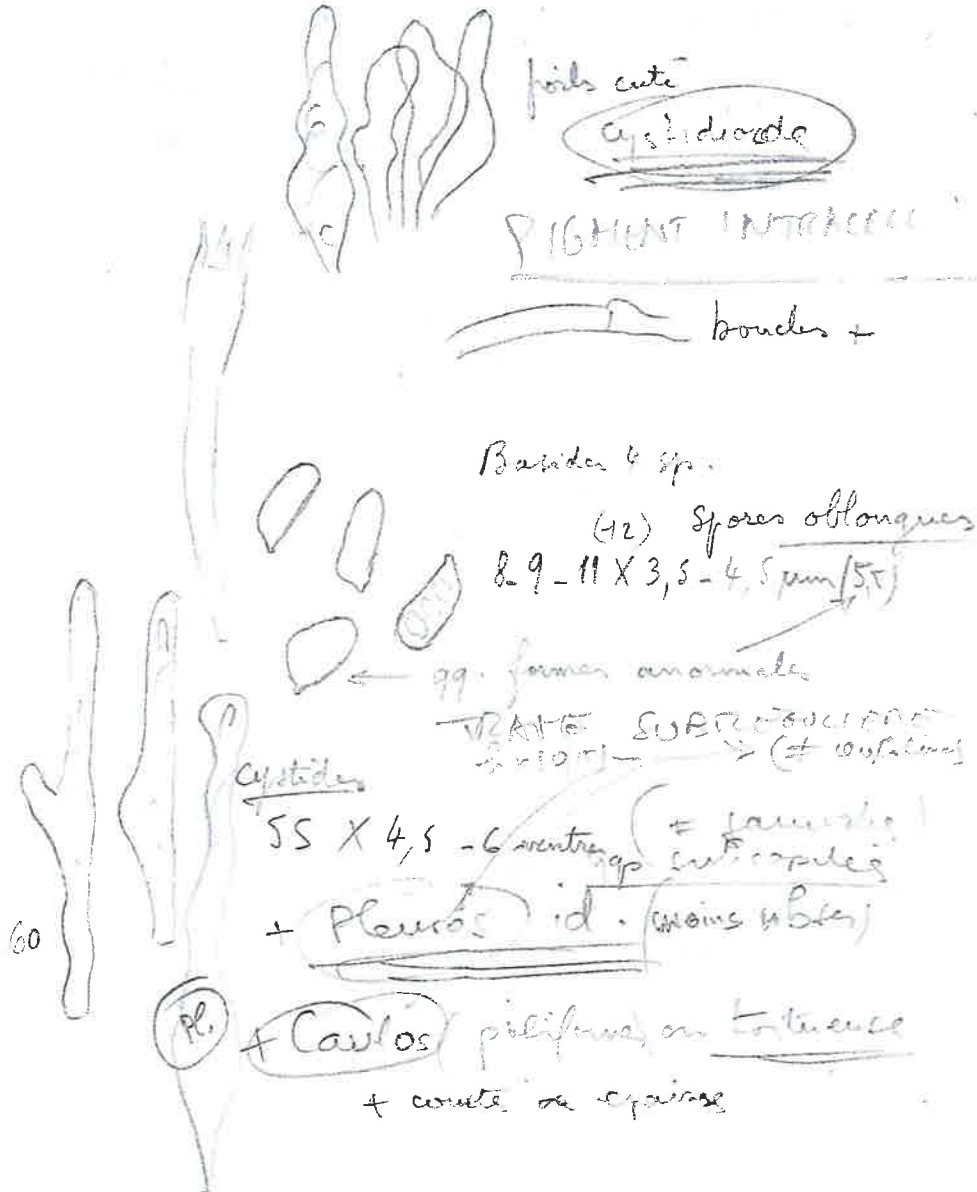 poils cuté
cystidioïde
PIGMENT INTRACELL
boucles +
Basides 4 sp.
(+2) Spores oblongues
8-9-11 X 3,5-4,5 µm (5,5)
qq. formes anormales
TRAME
Cystides
55 X 4,5 - 6 ventre
qq subcapités
60
+ Pleuros id. (moins nbses)
Pl.
+ Caulos piliformes ou tortueuse
+ courte ou épaisse